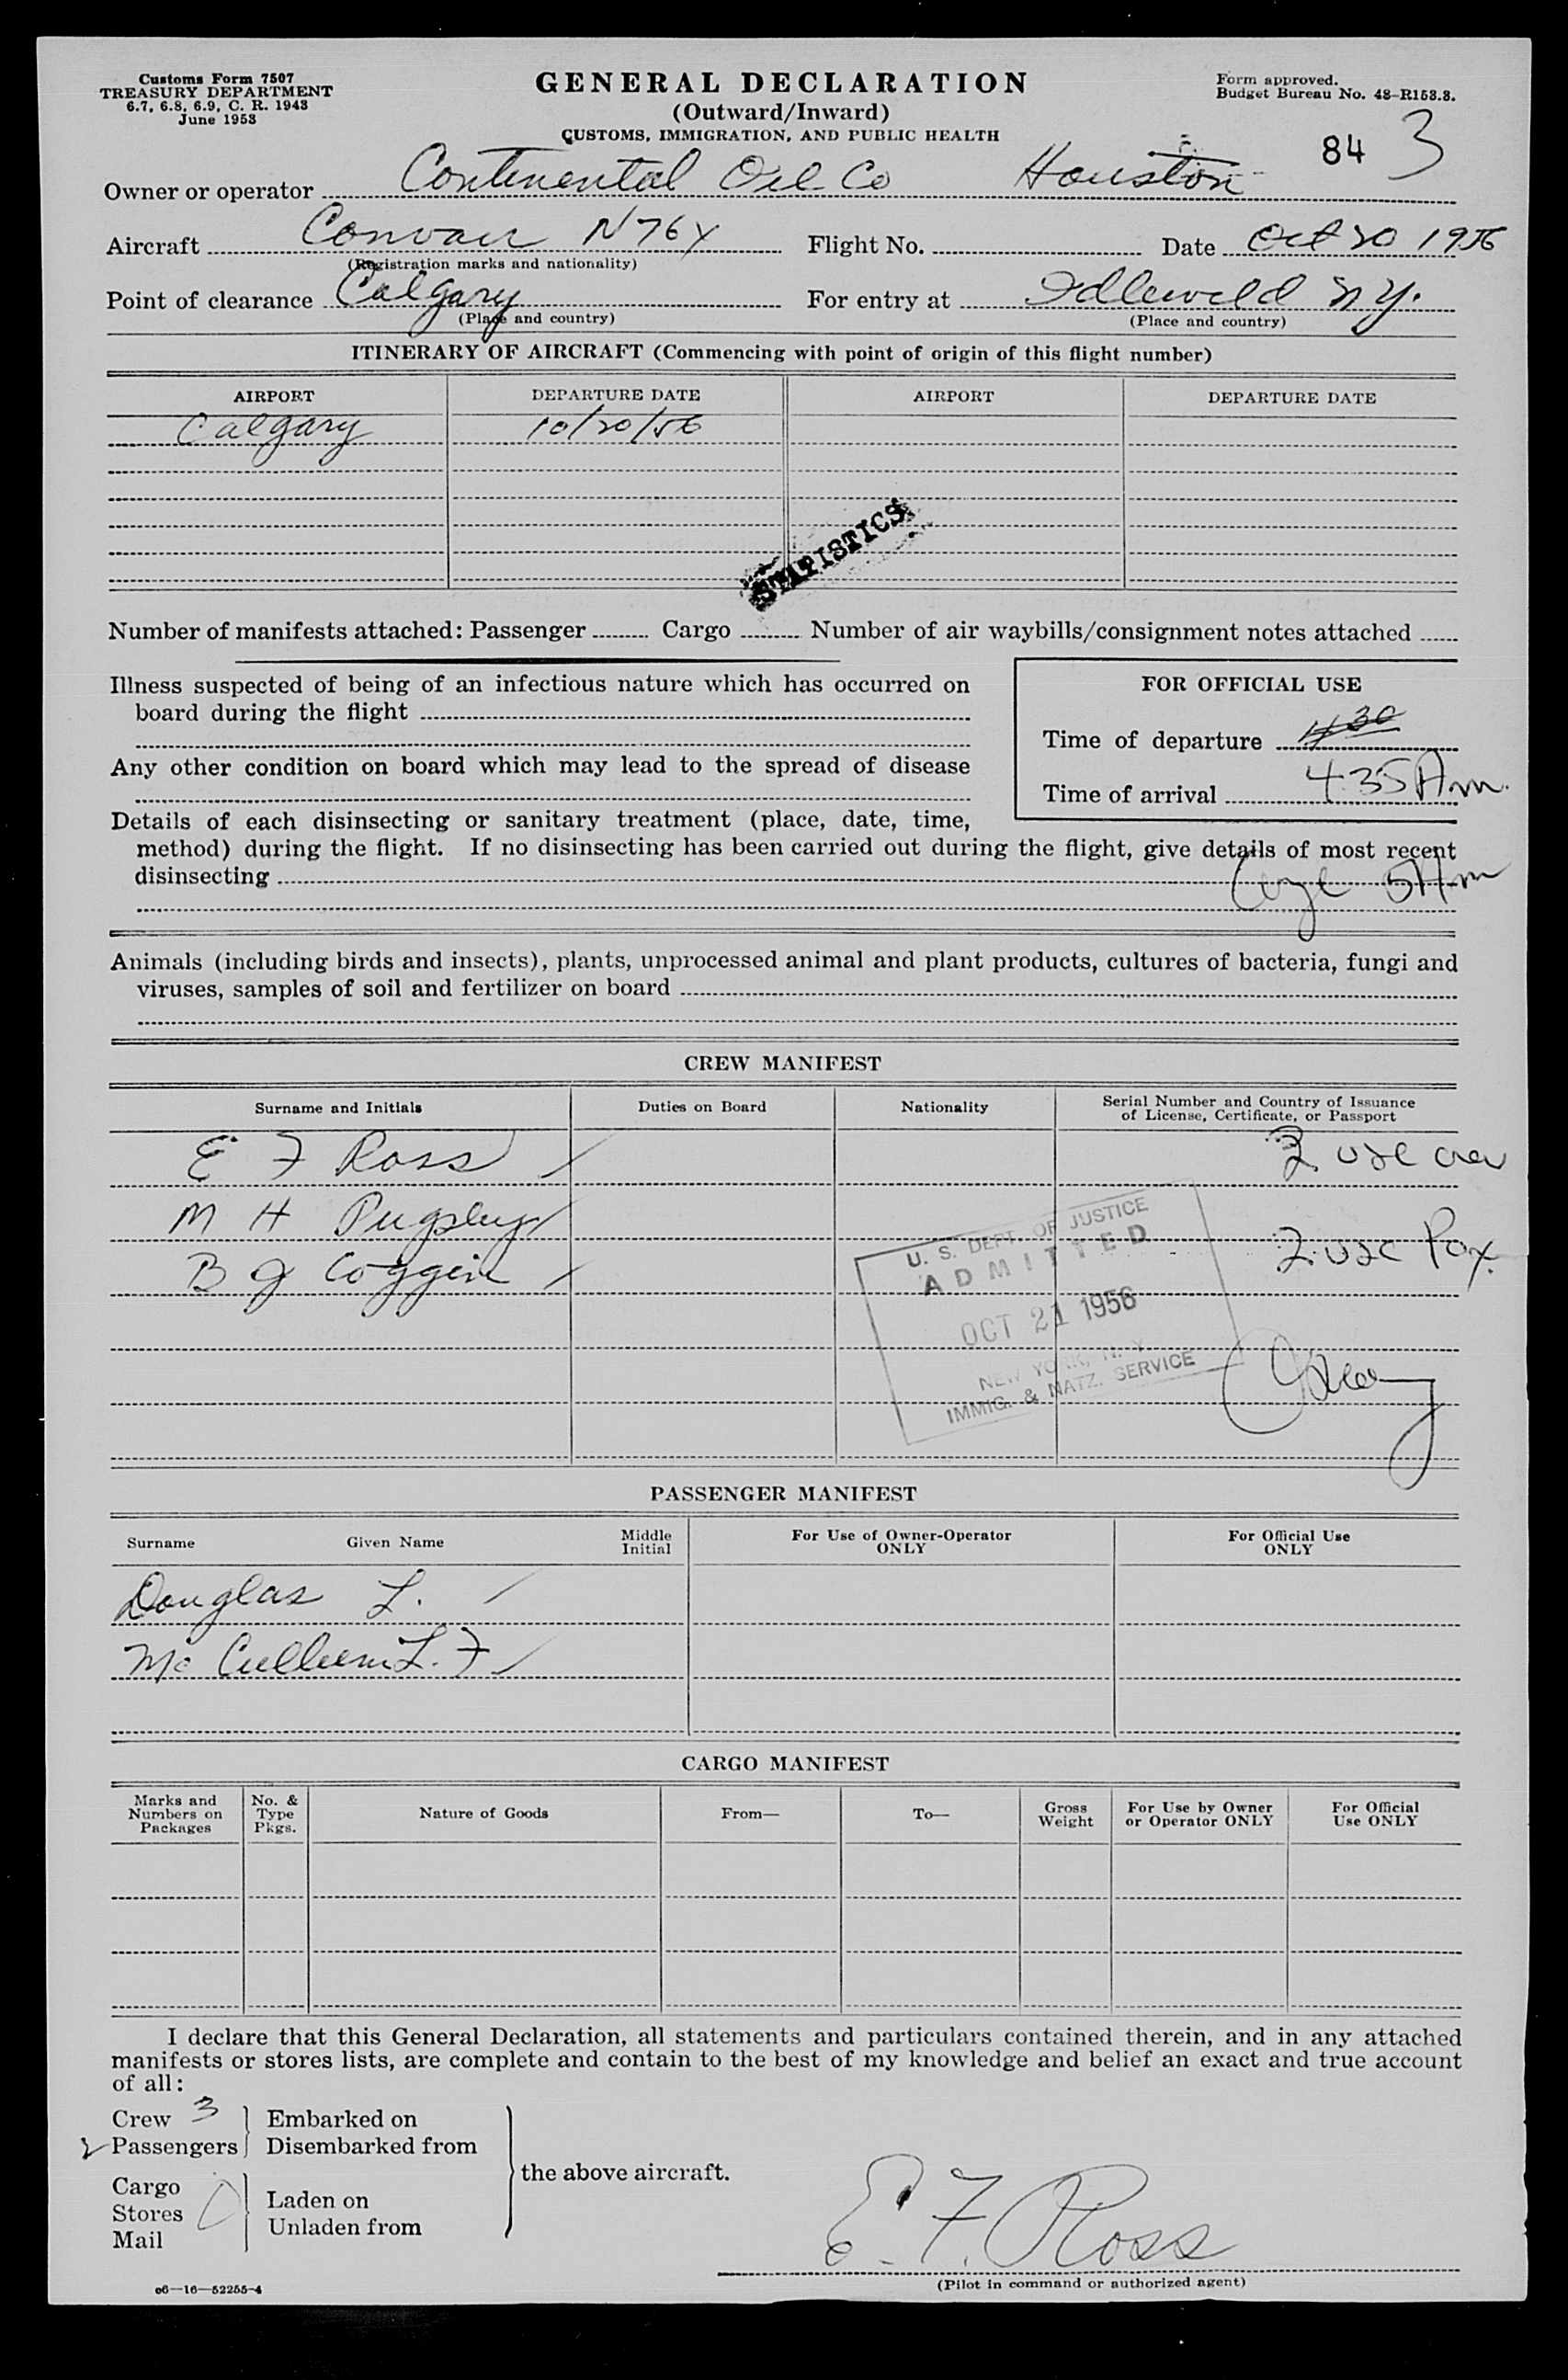 Customs Form 7507
TREASURY DEPARTMENT
6.7, 6.8, 6.9, C. R. 1943
June 1953
GENERAL DECLARATION
(Outward/Inward)
CUSTOMS, IMMIGRATION, AND PUBLIC HEALTH
Form approved.
Budget Bureau No. 48-R153.3.
84 3
Owner or operator Continental Oil Co Houston
Aircraft Convair N76Y Flight No. Date Oct 20 1956
(Registration marks and nationality)
Point of clearance Calgary For entry at Idlewild N.Y.
(Place and country) (Place and country)
ITINERARY OF AIRCRAFT (Commencing with point of origin of this flight number)
AIRPORT DEPARTURE DATE AIRPORT DEPARTURE DATE
Calgary 10/20/56
STATISTICS
Number of manifests attached: Passenger Cargo Number of air waybills/consignment notes attached
Illness suspected of being of an infectious nature which has occurred on
board during the flight
Any other condition on board which may lead to the spread of disease
FOR OFFICIAL USE
Time of departure
Time of arrival 435 Am.
Details of each disinsecting or sanitary treatment (place, date, time,
method) during the flight. If no disinsecting has been carried out during the flight, give details of most recent
disinsecting
5 Am
Animals (including birds and insects), plants, unprocessed animal and plant products, cultures of bacteria, fungi and
viruses, samples of soil and fertilizer on board
CREW MANIFEST
Surname and Initials Duties on Board Nationality Serial Number and Country of Issuance
of License, Certificate, or Passport
E F Ross
M H Pugsley
B J Coggin
3 usc crew
2 usc Pax.
U. S. DEPT. OF JUSTICE
ADMITTED
OCT 21 1956
NEW YORK, N. Y.
IMMIG. & NATZ. SERVICE
PASSENGER MANIFEST
Surname Given Name Middle
Initial For Use of Owner-Operator
ONLY For Official Use
ONLY
Douglas L.
Mc Cullum L. F
CARGO MANIFEST
Marks and
Numbers on
Packages No. &
Type
Pkgs. Nature of Goods From— To— Gross
Weight For Use by Owner
or Operator ONLY For Official
Use ONLY
I declare that this General Declaration, all statements and particulars contained therein, and in any attached
manifests or stores lists, are complete and contain to the best of my knowledge and belief an exact and true account
of all:
Crew 3 Embarked on
2 Passengers Disembarked from
the above aircraft.
Cargo
Stores 0 Laden on
Mail Unladen from
E. F. Ross
(Pilot in command or authorized agent)
c6—16—52255-4